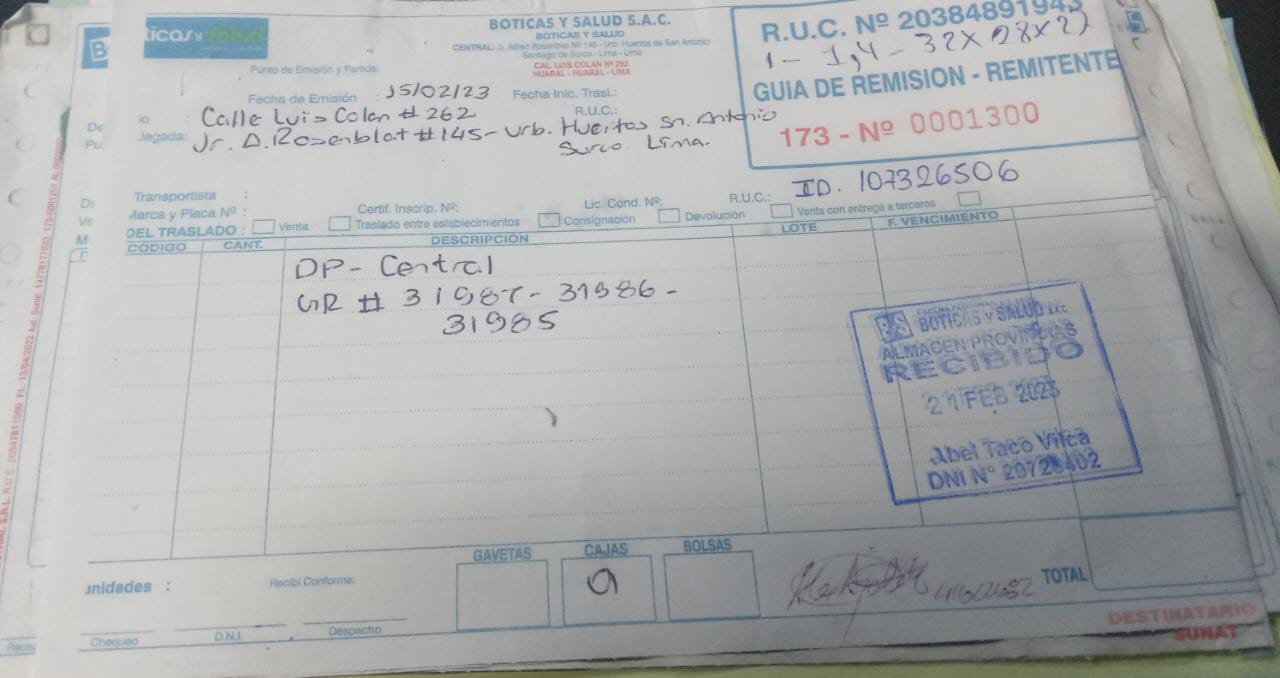 ticas y Salud
BOTICAS Y SALUD S.A.C.
BOTICAS Y SALUD
CENTRAL: Jr. Albert Rosenblat Nº 145 - Urb. Huertos de San Antonio
Santiago de Surco - Lima - Lima
CAL. LUIS COLAN Nº 262
HUARAL - HUARAL - LIMA
R.U.C. Nº 20384891943
1 - 1,4 - 32 x 28 x 22
GUIA DE REMISION - REMITENTE
173 - Nº 0001300
Punto de Emisión y Partida:
Fecha de Emisión : 15/02/23 Fecha Inic. Trasl.:
io : Calle Luis Colan # 262 R.U.C.:
legada: Jr. A. Rosenblat # 145 - Urb. Huertos Sn. Antonio
Surco Lima.
Transportista :
R.U.C.: ID. 107326506
Marca y Placa Nº : Certif. Inscrip. Nº: Lic. Cond. Nº:
DEL TRASLADO : Venta Traslado entre establecimientos Consignación Devolución Venta con entrega a terceros
CÓDIGO CANT. DESCRIPCIÓN LOTE F. VENCIMIENTO
DP - Central
GR # 31987 - 31986 -
31985
BS BOTICAS Y SALUD S.A.C.
ALMACEN PROVINCIAS
RECIBIDO
21 FEB 2023
Abel Taco Vilca
DNI Nº
GAVETAS CAJAS BOLSAS
unidades : Recibí Conforme: TOTAL
Chequeo D.N.I. Despacho
DESTINATARIO
SUNAT